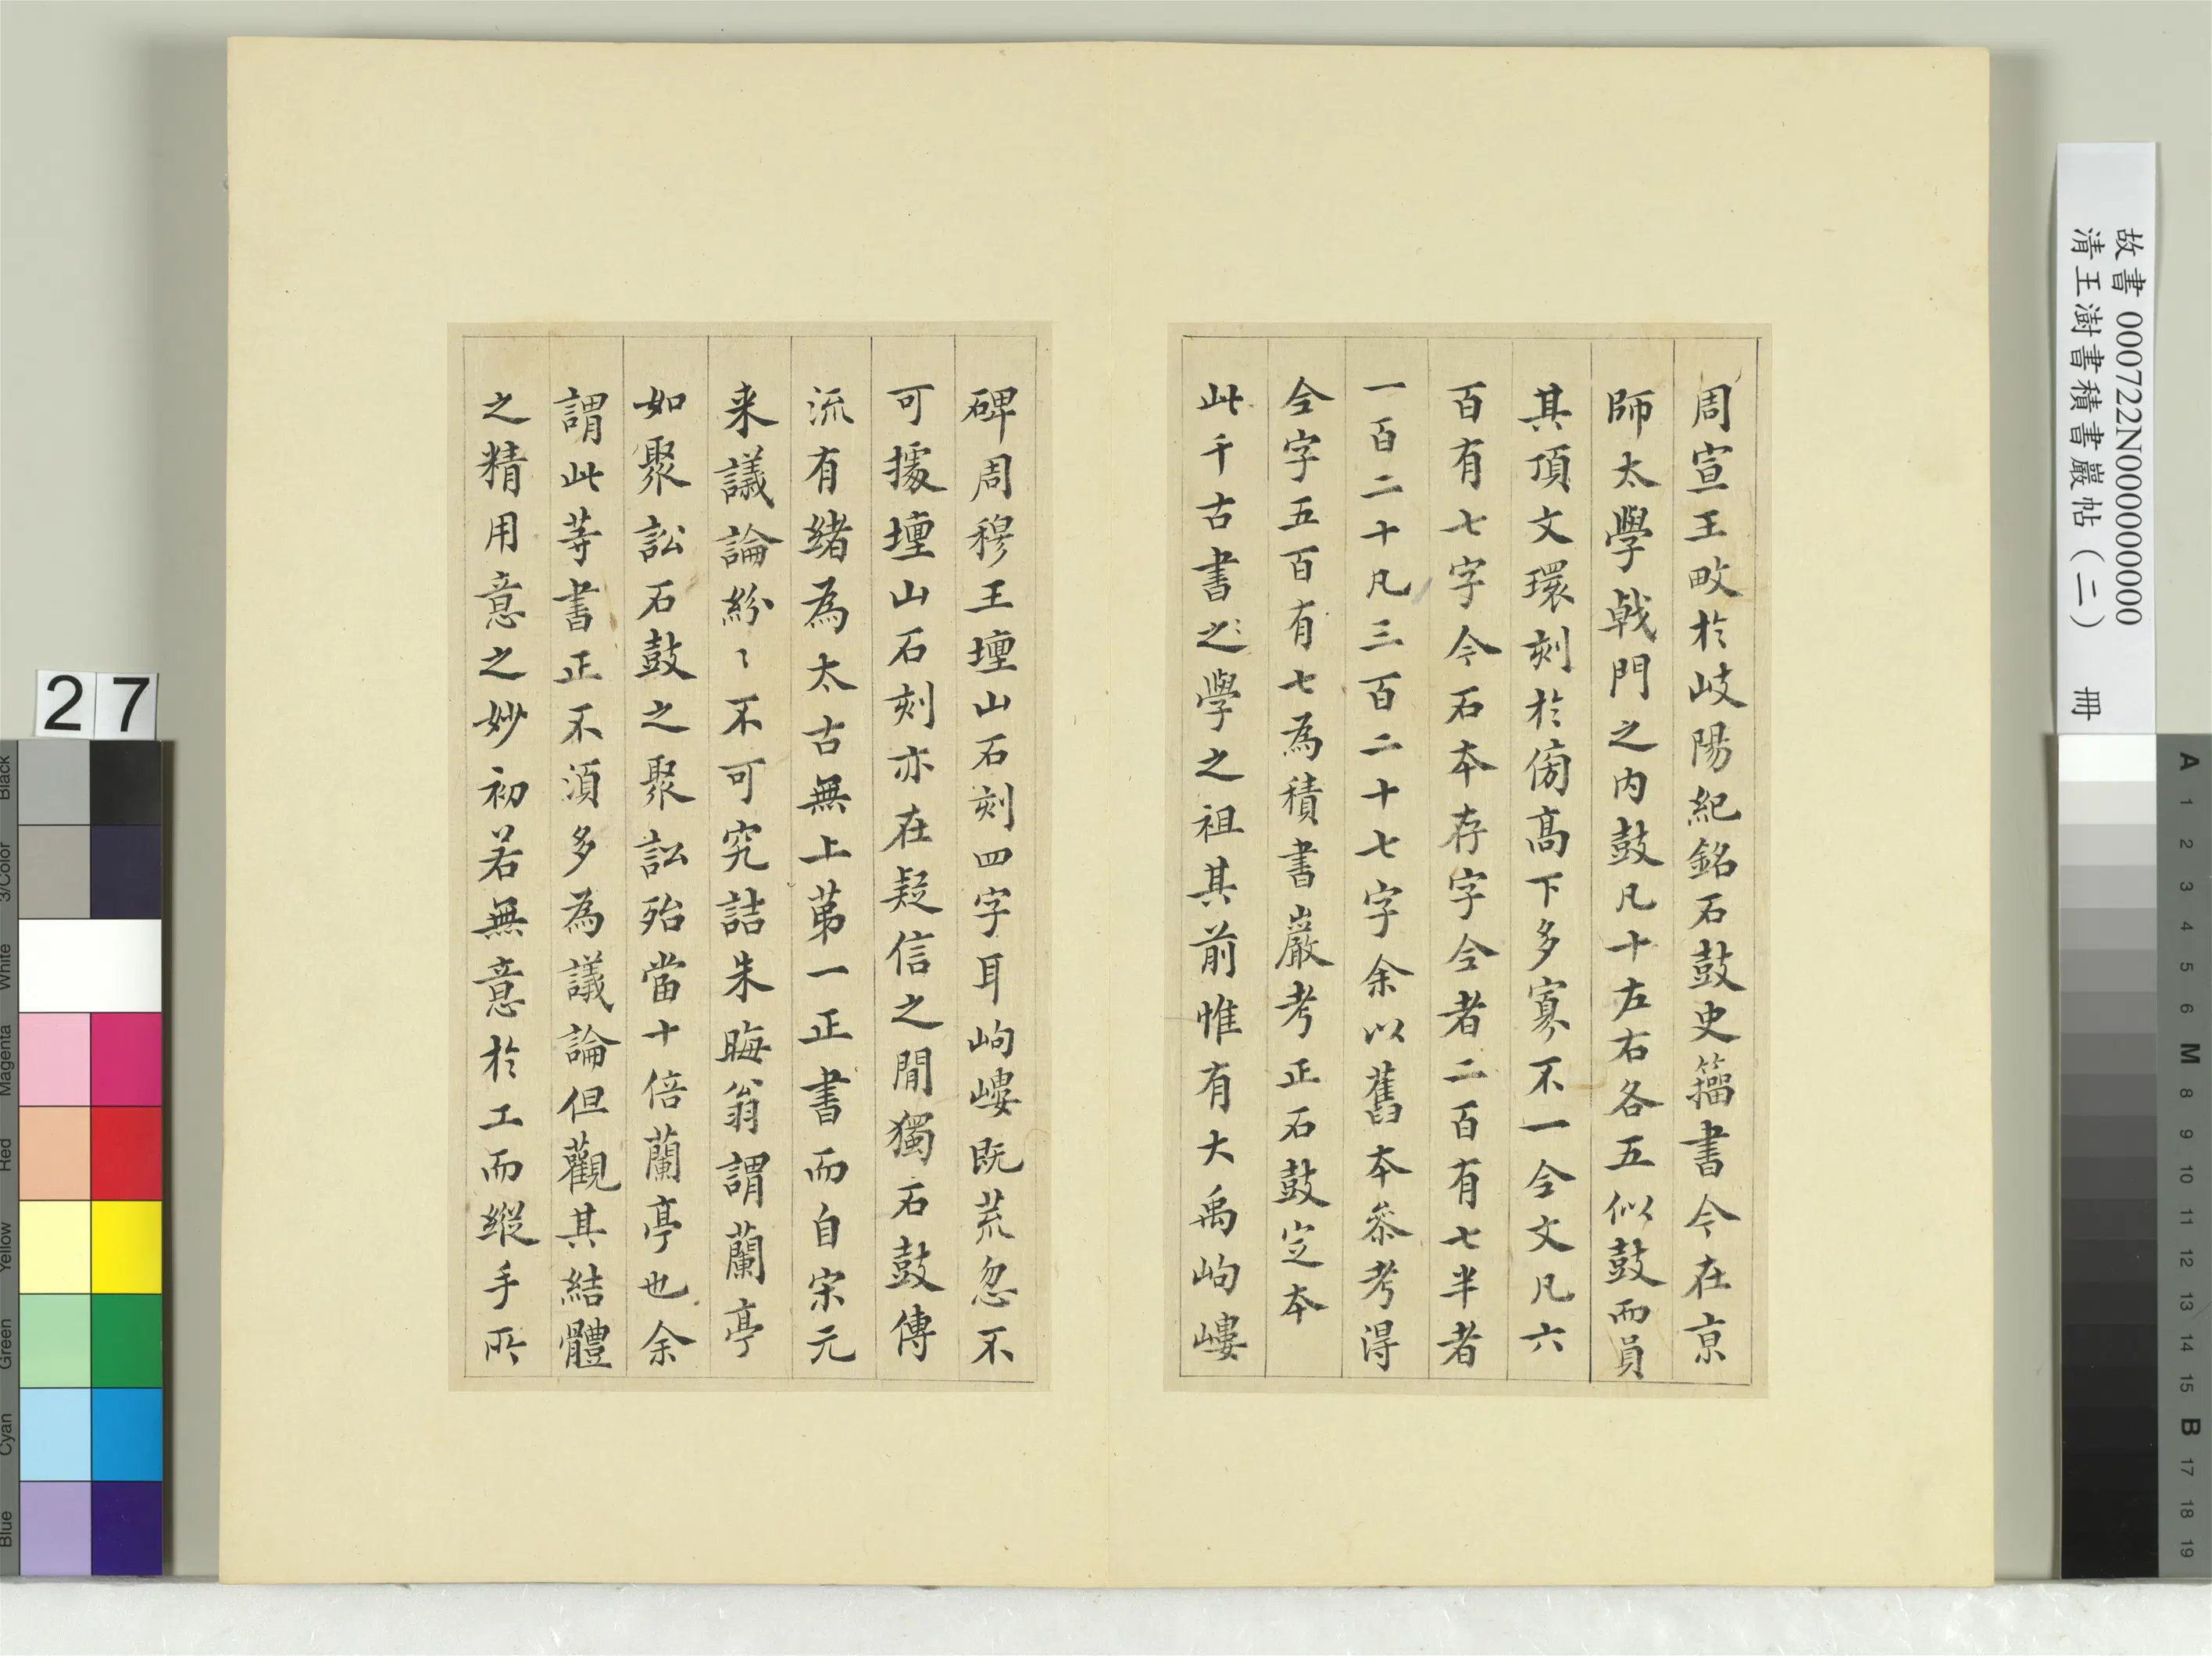 周宣王畋於岐陽紀銘石鼓史籀書今在京
師太學戟門之內鼓凡十左右各五似鼓而員
其頂文環刻於傍高下多寡不一全文凡六
百有七字今石本存字全者二百有七半者
一百二十凡三百二十七字余以舊本叅考得
全字五百有七為積書巖考正石鼓定本
此千古書之學之祖其前惟有大禹岣嶁
碑周穆王壇山石刻四字耳岣嶁既荒忽不
可據壇山石刻亦在疑信之間獨石鼓傳
流有緒為太古無上苐一正書而自宋元
来議論紛〻不可究詰朱晦翁謂蘭亭
如聚訟石鼓之聚訟殆當十倍蘭亭也余
謂此等書正不須多為議論但觀其結體
之精用意之妙初若無意於工而縱手所
故書 000722N000000000
清王澍書積書巖帖(二) 冊
27
Black
3/Color
White
Magenta
Red
Yellow
Green
Cyan
Blue
A 1 2 3 4 5 6 M 8 9 10 11 12 13 14 15 B 17 18 19